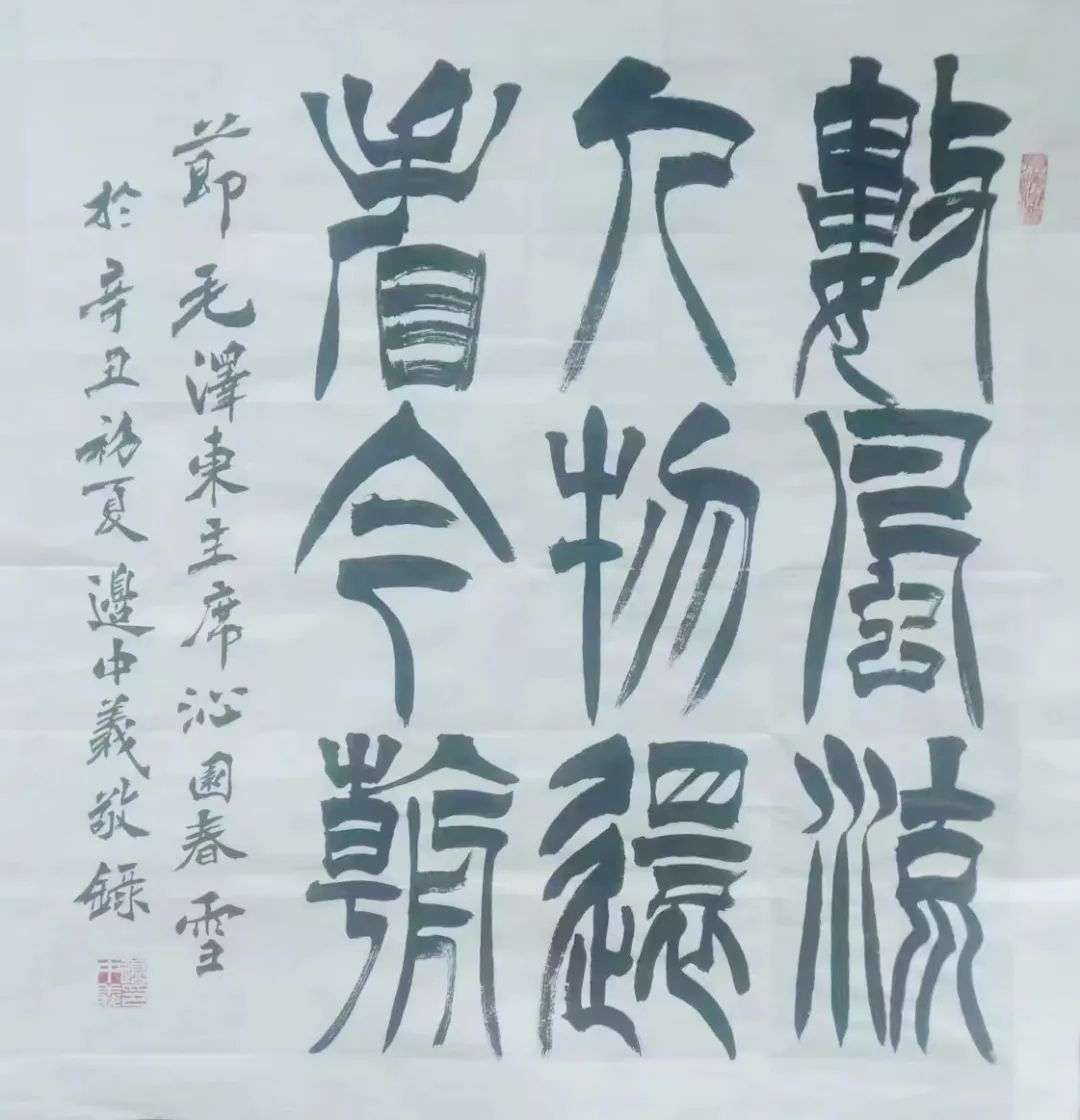 數風流
人物還
看今朝
節毛澤東主席沁園春雪
於辛丑初夏邊中義敬錄